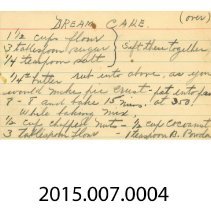 (over)
DREAM CAKE
1 1/2 cup flour
3 tablespoon sugar } Sift these together
1/4 teaspoon salt
1/4 # butter rub into above, as you
would make pie crust - pat into pan
8 - 8 and bake 15 mins. at 350!
While baking mix,
1/2 cup chopped nuts - 1/2 cup Cocoanut
3 tablespoon flour - 1 teaspoon B. Powder
2015.007.0004